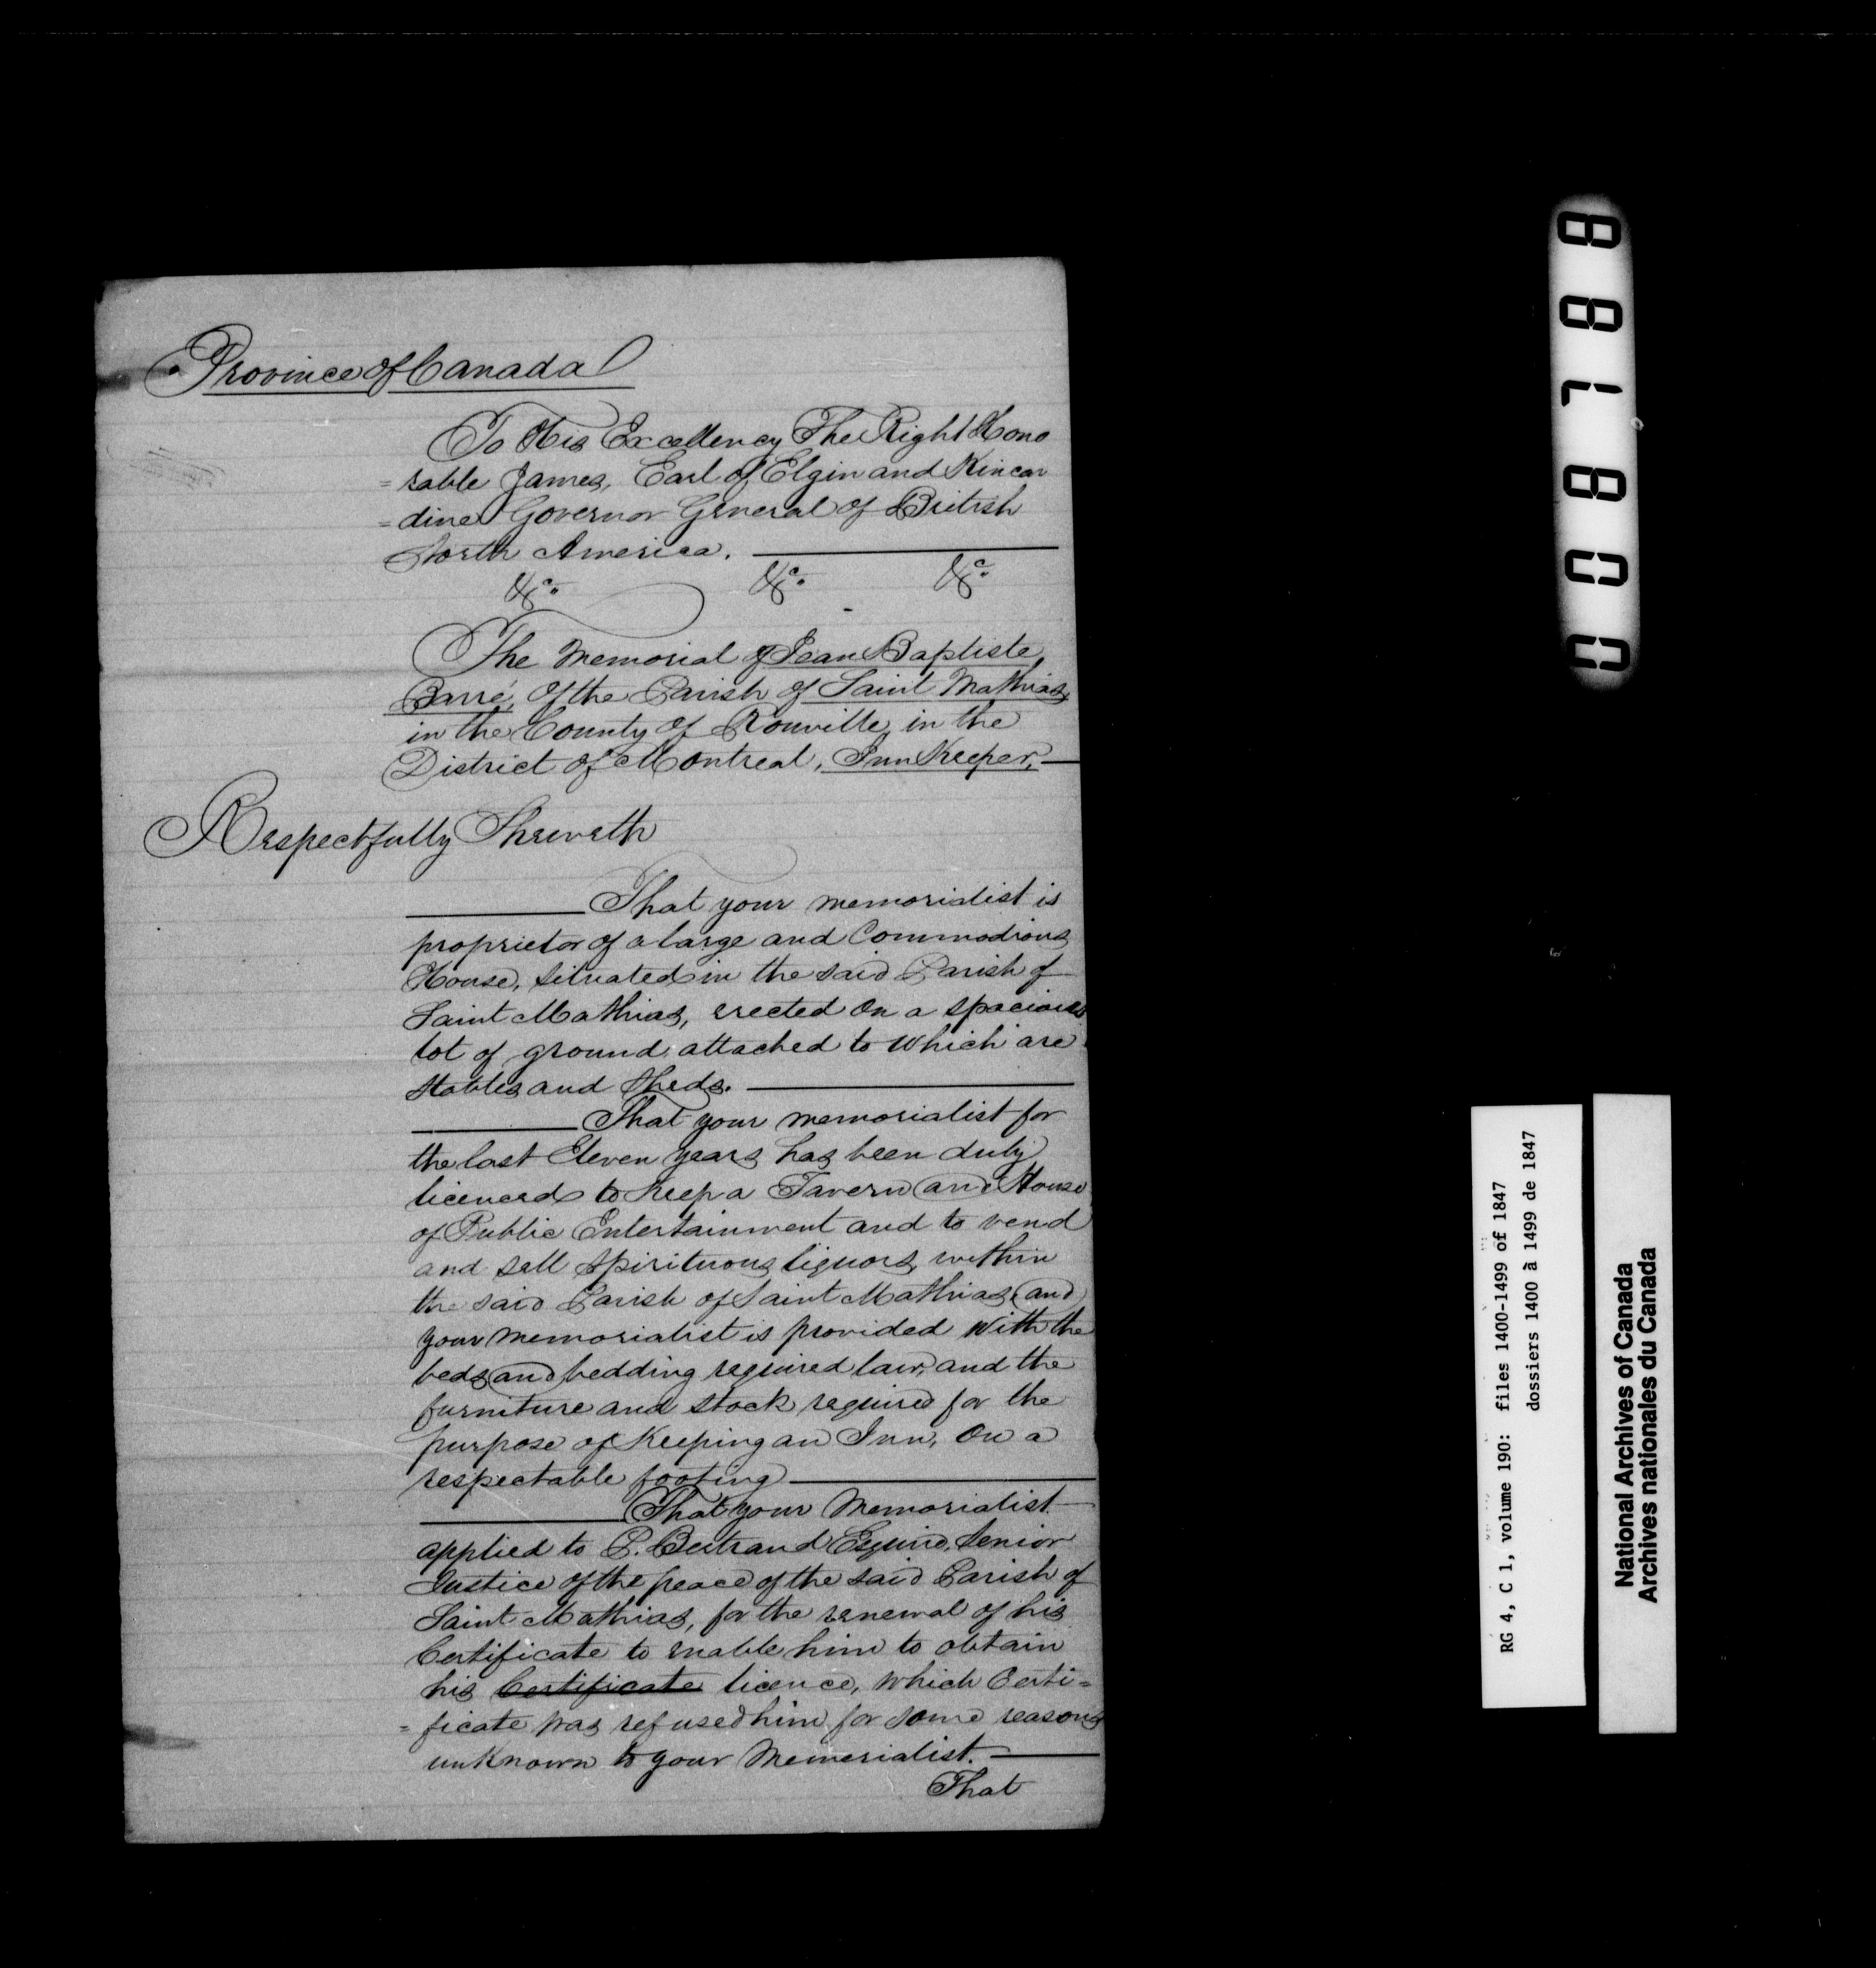 Province of Canada
To His Excellency The Right Hono
=rable James, Earl of Elgin and Kincar
=dine Governor General of British
North America.
&c. &c. &c.
The Memorial of Jean Baptiste
Barré, Of the Parish of Saint Mathias
in the County of Rouville, in the
District of Montreal, Inn Keeper,
Respectfully Sheweth
That your memorialist is
proprietor of a large and Commodious
House, situated in the said Parish of
Saint Mathias, erected on a spacious
lot of ground attached to which are
stables and sheds.
That your memorialist for
the last Eleven years has been duly
licenced to keep a Tavern and House
of Public Entertainment and to vend
and sell spirituous liquors within
the said Parish of Saint Mathias, and
your memorialist is provided with the
beds and bedding required law, and the
furniture and stock required for the
purpose of Keeping an Inn, On a
respectable footing
That your Memorialist
applied to P. Bertrand Esquire, Senior
Justice of the peace of the said Parish of
Saint Mathias, for the renewal of his
Certificate to enable him to obtain
his Certificate licence, which Certi=
=ficate was refused him for some reasons
unKnown to your Memorialist.
That
0087188
RG 4, C 1, volume 190: files 1400-1499 of 1847
dossiers 1400 à 1499 de 1847
National Archives of Canada
Archives nationales du Canada